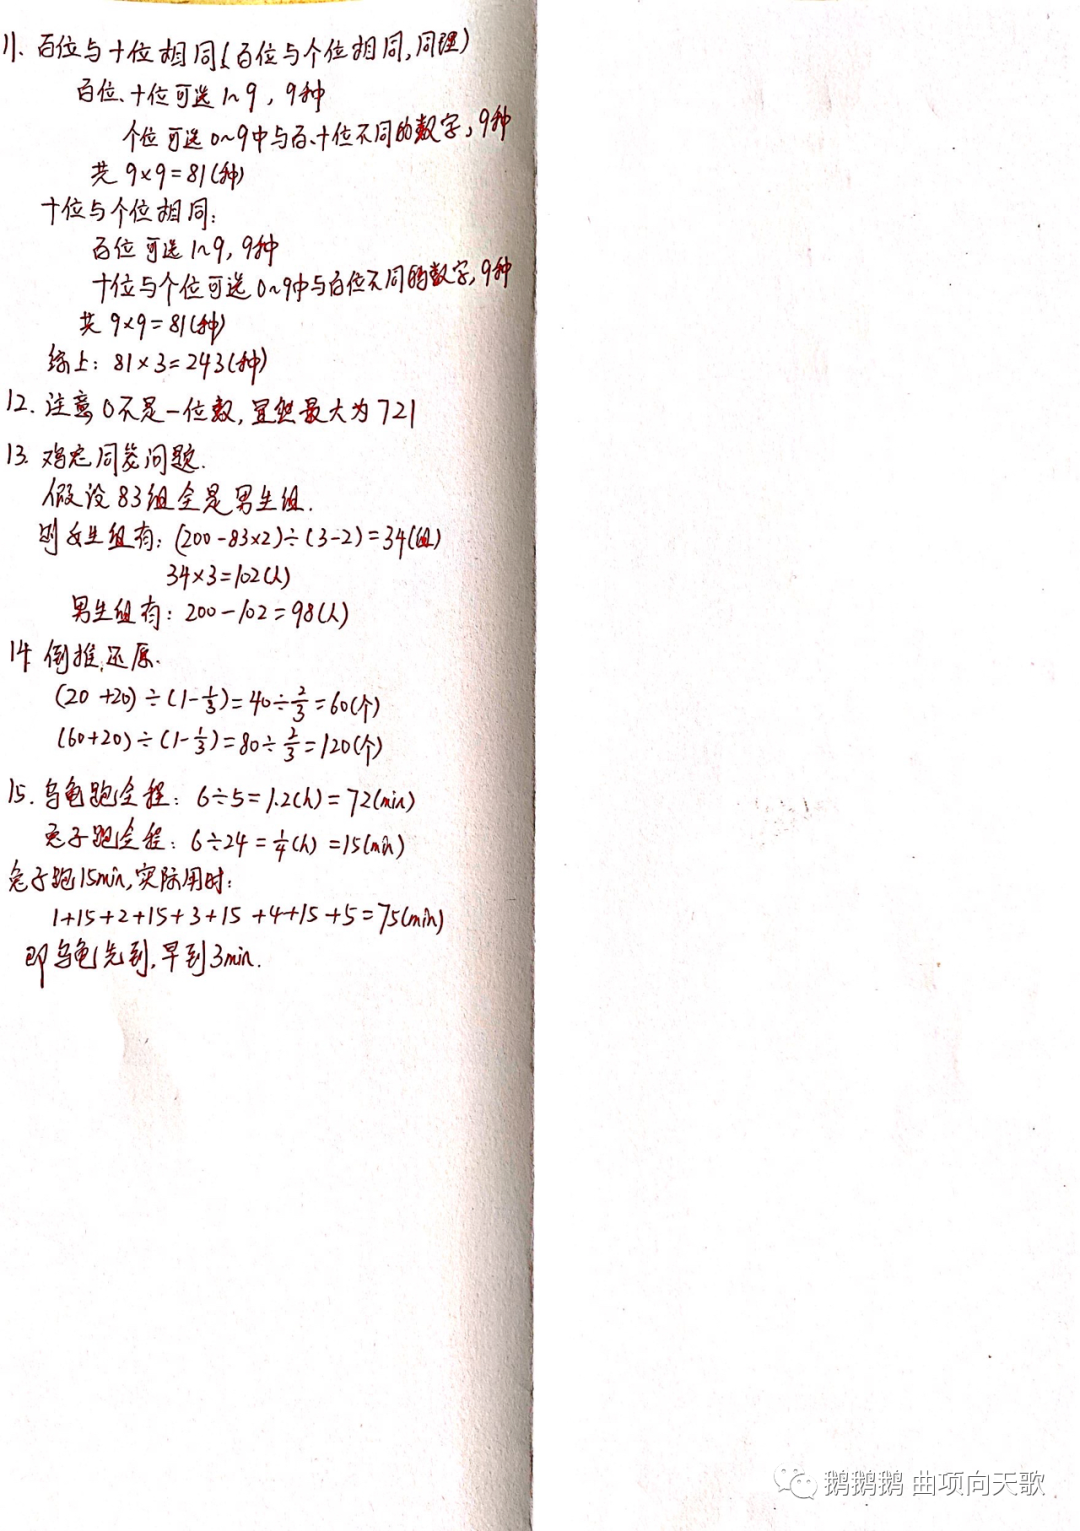 11. 百位与十位相同(百位与个位相同,同理)
百位、十位可选1~9, 9种
个位可选0~9中与百、十位不同的数字, 9种
共 9×9=81(种)
十位与个位相同:
百位可选1~9, 9种
十位与个位可选0~9中与百位不同的数字, 9种
共 9×9=81(种)
综上: 81×3=243(种)
12. 注意0不是一位数,显然最大为721
13. 鸡兔同笼问题.
假设83组全是男生组.
则女生组有: (200-83×2)÷(3-2)=34(组)
34×3=102(人)
男生组有: 200-102=98(人)
14. 倒推,还原.
(20+20)÷(1-1/3)=40÷2/3=60(个)
(60+20)÷(1-1/3)=80÷2/3=120(个)
15. 乌龟跑全程: 6÷5=1.2(h)=72(min)
兔子跑全程: 6÷24=1/4(h)=15(min)
兔子跑15min,实际用时:
1+15+2+15+3+15+4+15+5=75(min)
即乌龟先到,早到3min.
鹅鹅鹅 曲项向天歌